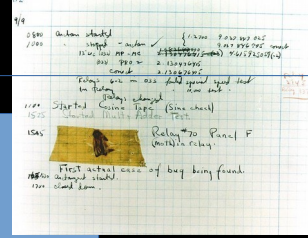 9/9
0800 antan started
1000 " stopped - antan ✓ { 1.2700 9.037 847 025
9.037 846 995 correct
13"uc (032) MP-MC 4.615925059(-2)
(033) PRO 2 2.130476415
correct 2.130676415
Relays 6-2 in 033 failed special speed test
in relay
Relays changed
1100 Started Cosine Tape (Sine check)
1525 Started Multi Adder Test
1545 Relay #70 Panel F
(moth) in relay.
First actual case of bug being found.
antangent started.
1700 closed down.